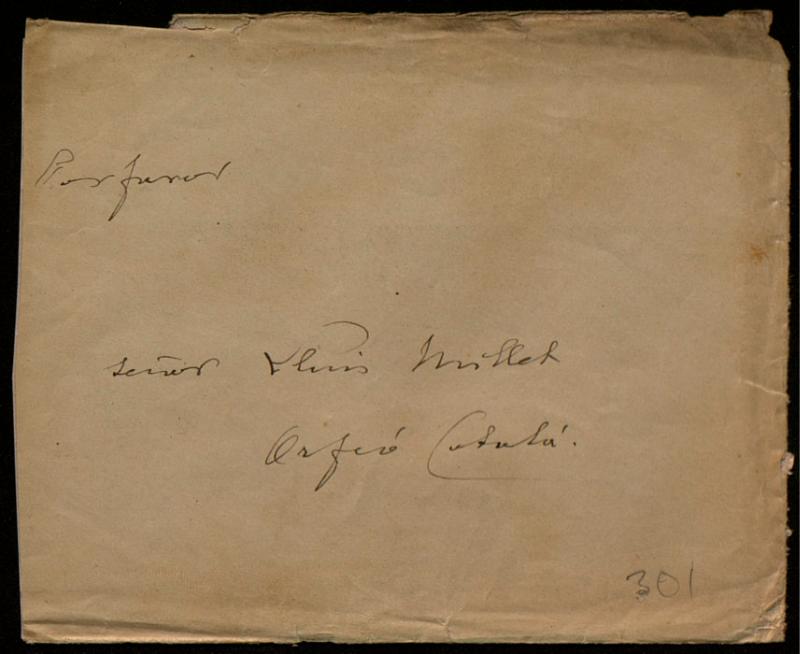 Por favor
señor Lluis Millet
Orfeó Catalá.
301